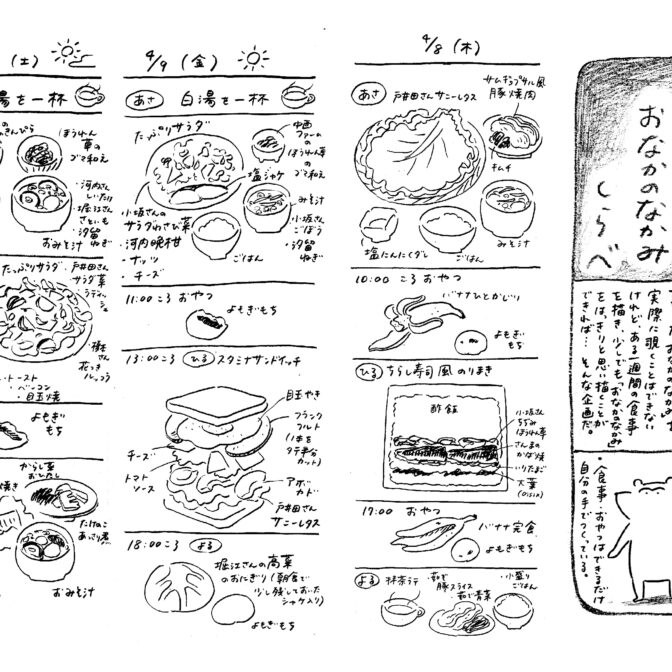 おなかのなかみ
しらべ
実際に覗くことはできない
けれど、ある一週間の食事
を描き、少しでも「おなかのなかみ」
をはっきりと思い描くことが
できれば…そんな企画だ。
・食事・おやつはできるだけ
自分の手でつくっている。
4/8(木)
あさ
戸井田さんサニーレタス
サムギョプサル風
豚焼肉
キムチ
みそ汁
塩にんにくダレ
ごはん
10:00 ころ おやつ
バナナひとかじり
よもぎ
もち
ひる ちらし寿司風 のりまき
酢飯
小坂さん
ちぢみ
ほうれん草
さんまの
かば焼
いりたまご
大葉
(Oisix)
17:00 おやつ
バナナ完食
よもぎもち
よる
抹茶ラテ
・茹で
豚スライス
・茹で青菜
・小盛り
ごはん
4/9(金)
あさ 白湯を一杯
たっぷりサラダ
中西
ファームの
ほうれん草の
ゴマ和え
塩シャケ
みそ汁
・小坂さん
ごぼう
・汐留
ねぎ
小坂さんの
サラダわさび菜
・河内晩柑
・ナッツ
・チーズ
ごはん
11:00 ころ おやつ
よもぎもち
13:00 ころ ひる スタミナサンドイッチ
目玉やき
フランク
フルト
(1本を
タテ半分
カット)
チーズ
トマト
ソース
アボ
カド
戸井田さん
サニーレタス
18:00 ころ よる
堀江さんの高菜
のおにぎり(朝食で
少し残しておいた
シャケ入り)
よもぎもち
(土)
湯を一杯
ほうれん
草の
ゴマ和え
・河内さん
しいたけ
・堀江さん
さといも
・汐留
ねぎ
おみそ汁
たっぷりサラダ
・戸井田さん
サラダ菜
ラディッ
シュ
・トースト
・ベーコン
・目玉焼
よもぎ
もち
からし菜
おひたし
焼き
たけのこ
あさり煮
おみそ汁